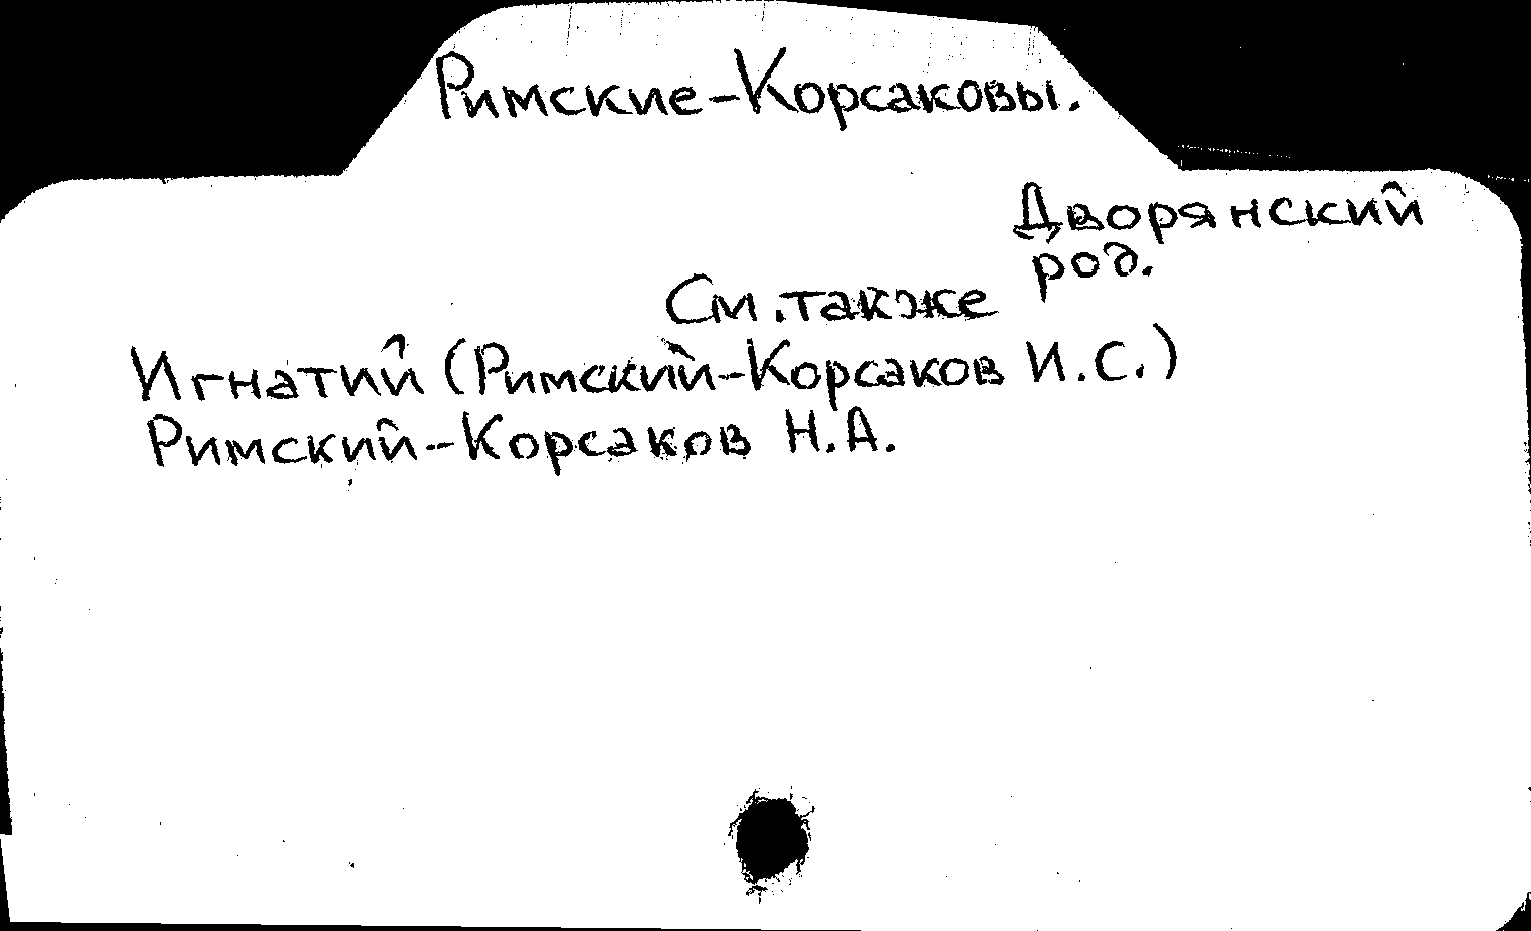 Римские-Корсаковы.
Дворянский
род.
См. также
Игнатий (Римский-Корсаков И.С.)
Римский-Корсаков Н.А.